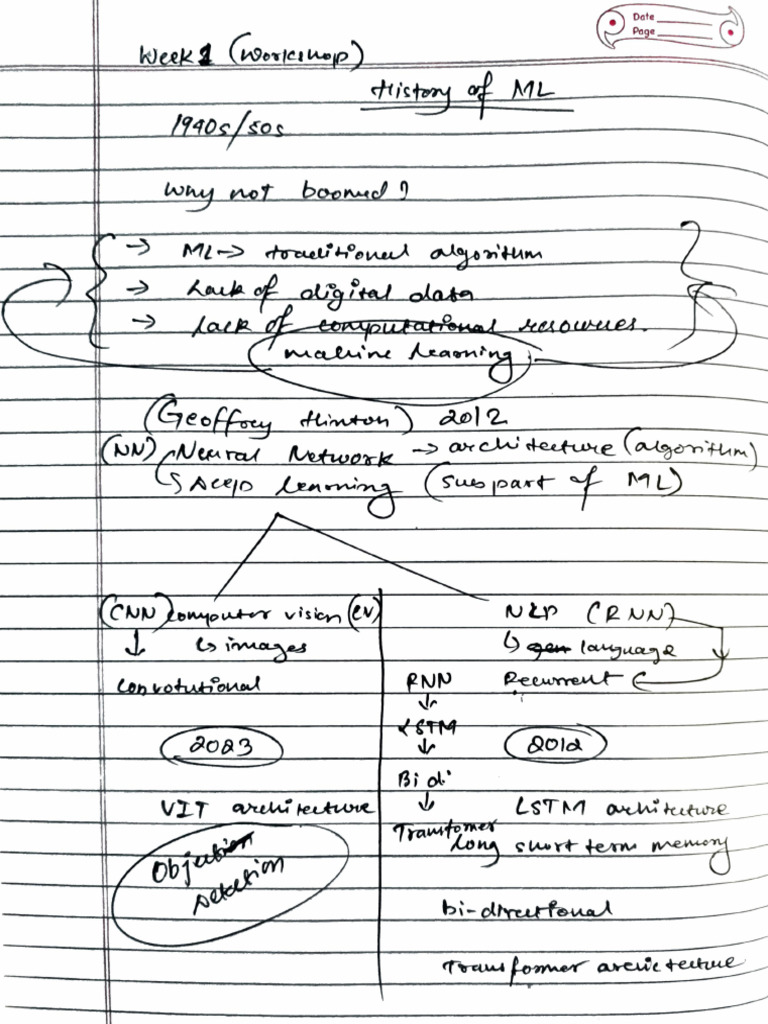 Date
Page
Week 1 (Workshop)
History of ML
1940s/50s
Why not boomed?
→ ML → traditional algorithm
→ Lack of digital data
→ Lack of computational resources.
machine learning
(Geoffrey Hinton) 2012
(NN) Neural Network → architecture (algorithm)
↳ Deep learning (subpart of ML)
(CNN) computer vision (CV)
↳ images
Convolutional
2023
VIT architecture
Objection
Detection
NLP (RNN)
↳ language
Recurrent
RNN
↓
LSTM
↓
Bi di
↓
Transformer
2012
LSTM architecture
long short term memory
bi-directional
Transformer architecture